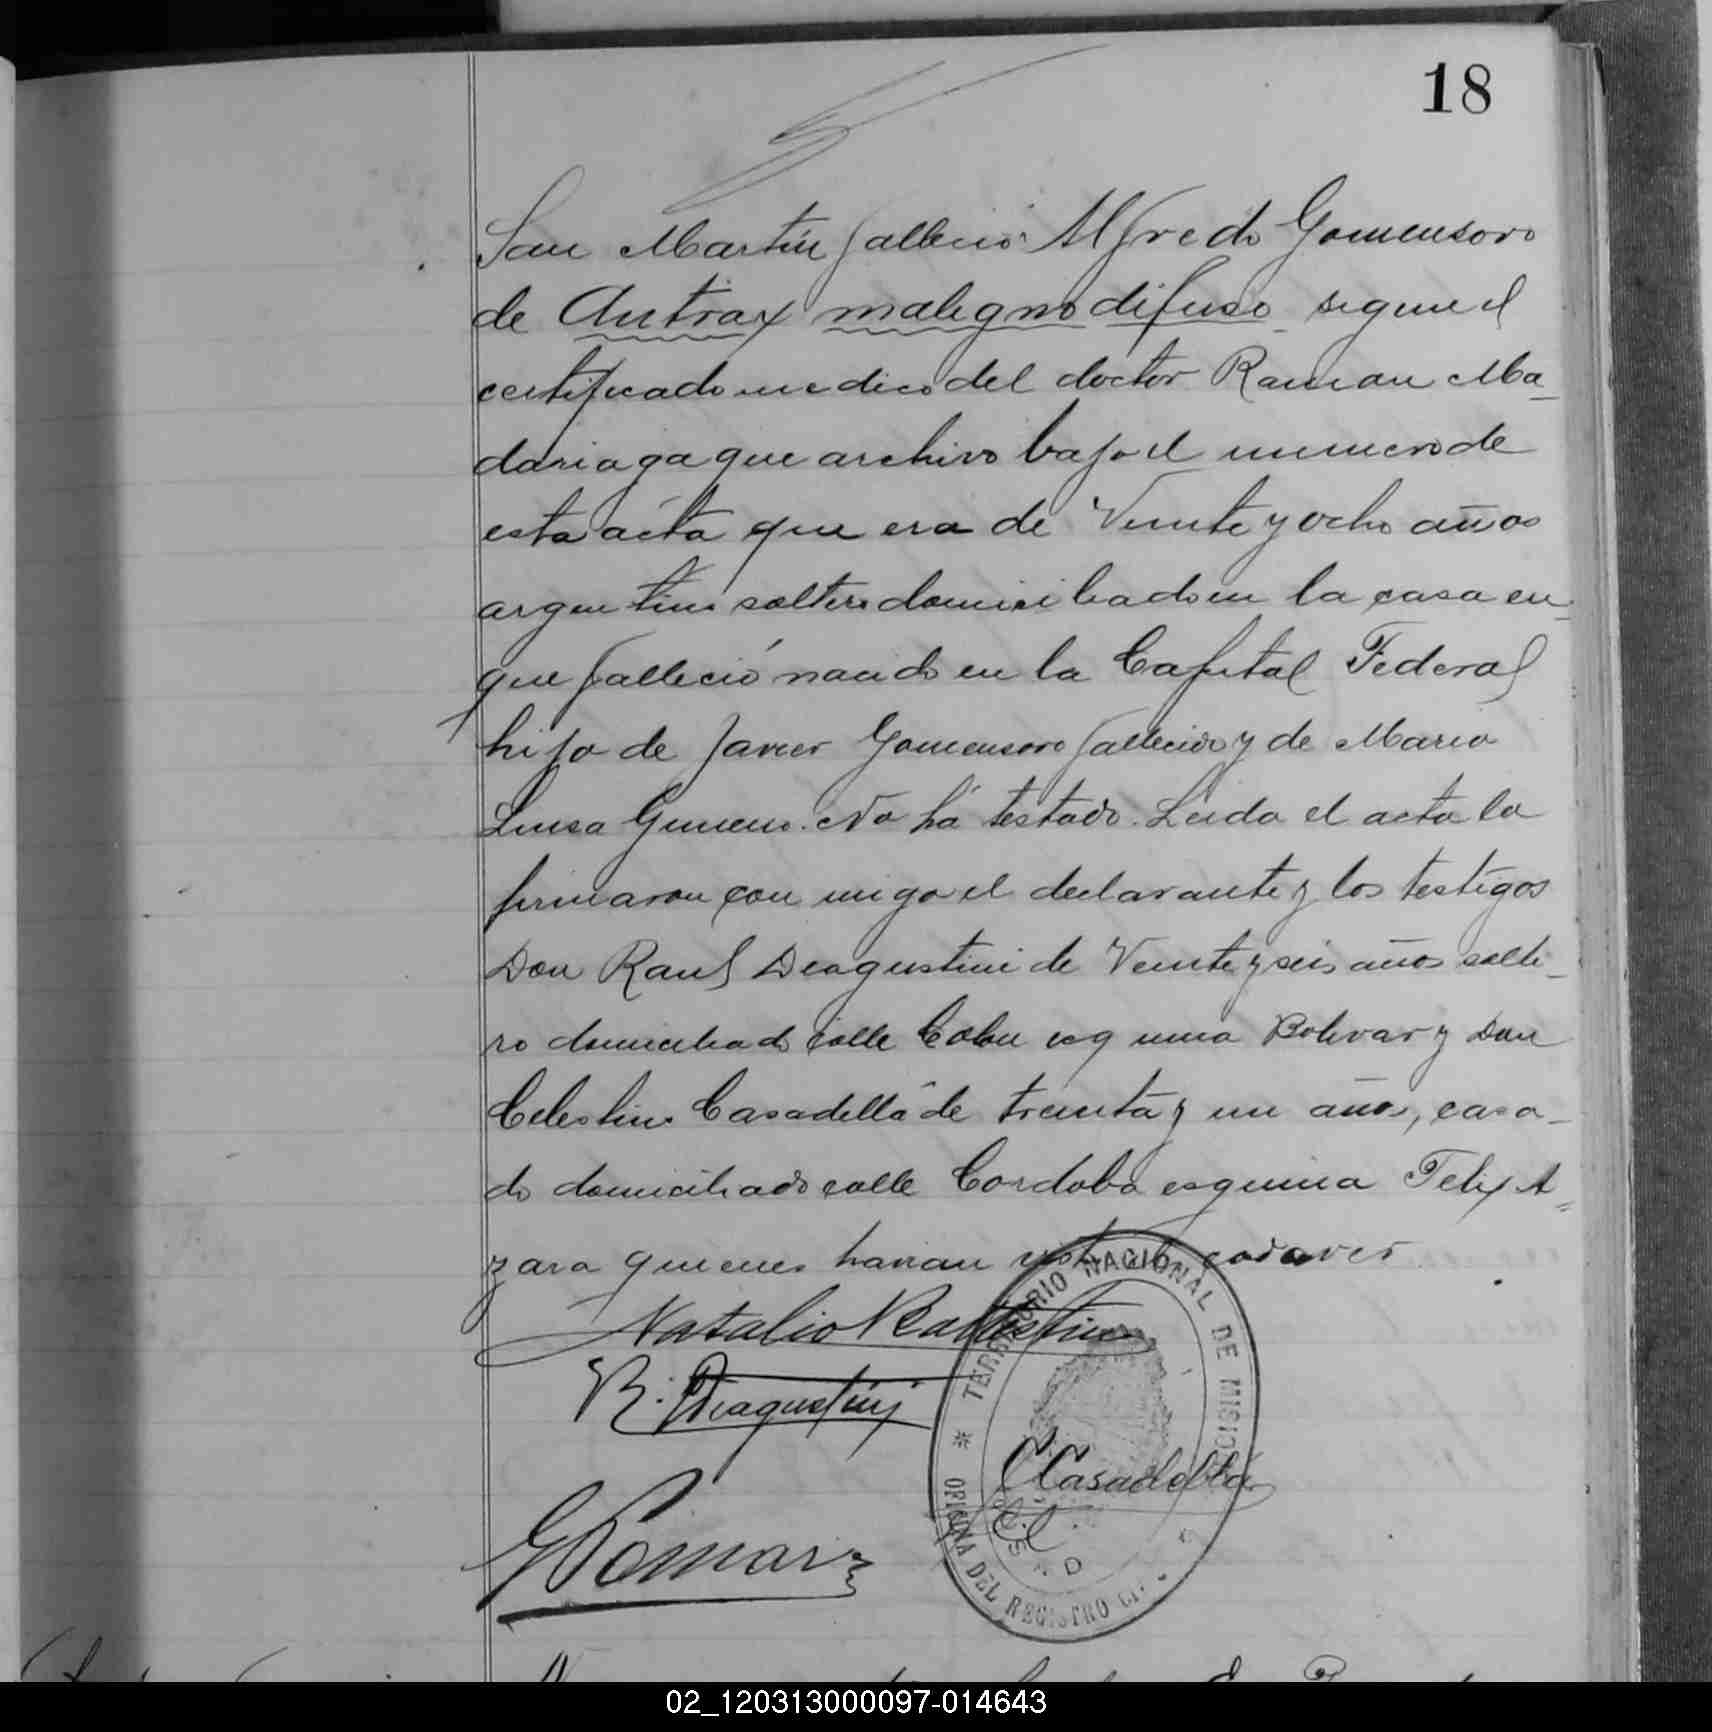 18
San Martin falleció Alfredo Gomensoro
de Antrax maligno difuso segun el
certificado medico del doctor Ramon Ma-
dariaga que archivo bajo el numero de
esta acta que era de Veinte y ocho años
argentino soltero domiciliado en la casa en
que falleció nacido en la Capital Federal
hijo de Javier Gomensoro fallecido y de Maria
Luisa Gimeno. No há testado. Leida el acta la
firmaron con migo el declarante y los testigos
Don Raul Deagustini de Veinte y seis años solte-
ro domiciliado calle Colon esquina Bolivar y Don
Celestino Casadellá de treinta y un años, casa-
do domiciliado calle Cordoba esquina Felix A=
zara quienes havian visto el cadaver
Natalio Ballestine
R. Deagustini
C Casadellá
G Pomar
TERRITORIO NACIONAL DE MISIONES
OFICINA DEL REGISTRO CIVIL
02_120313000097-014643